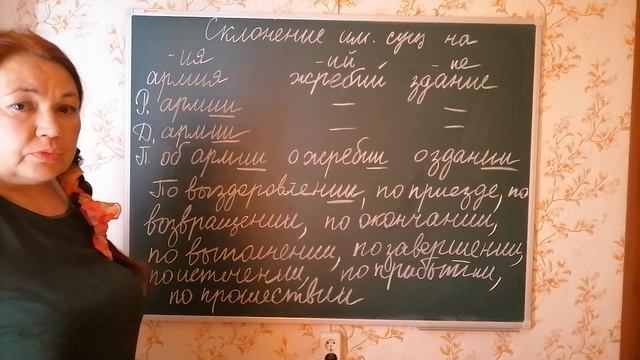 Склонение им. сущ. на
-ия -ий -ие
армия жребий здание
Р. армии — —
Д. армии — —
П. об армии о жребии о здании
По выздоровлении, по приезде, по
возвращении, по окончании,
по выполнении, по завершении,
по истечении, по прибытии,
по прошествии